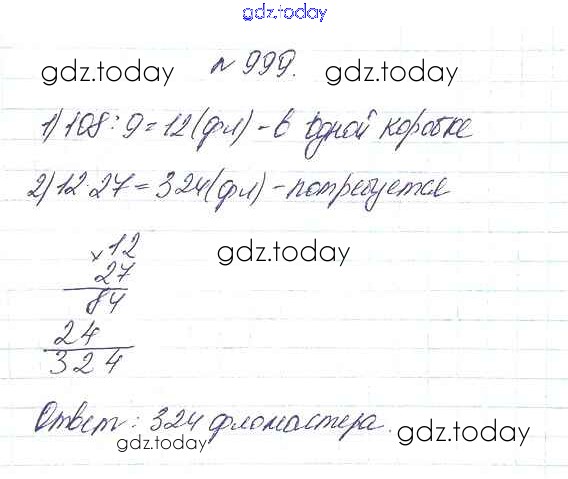 gdz.today
gdz.today № 999. gdz.today
1) 108 : 9 = 12 (фл) - в одной коробке
2) 12 · 27 = 324 (фл) - потребуется
× 12
27 gdz.today
84
24
324
Ответ: 324 фломастера.
gdz.today gdz.today